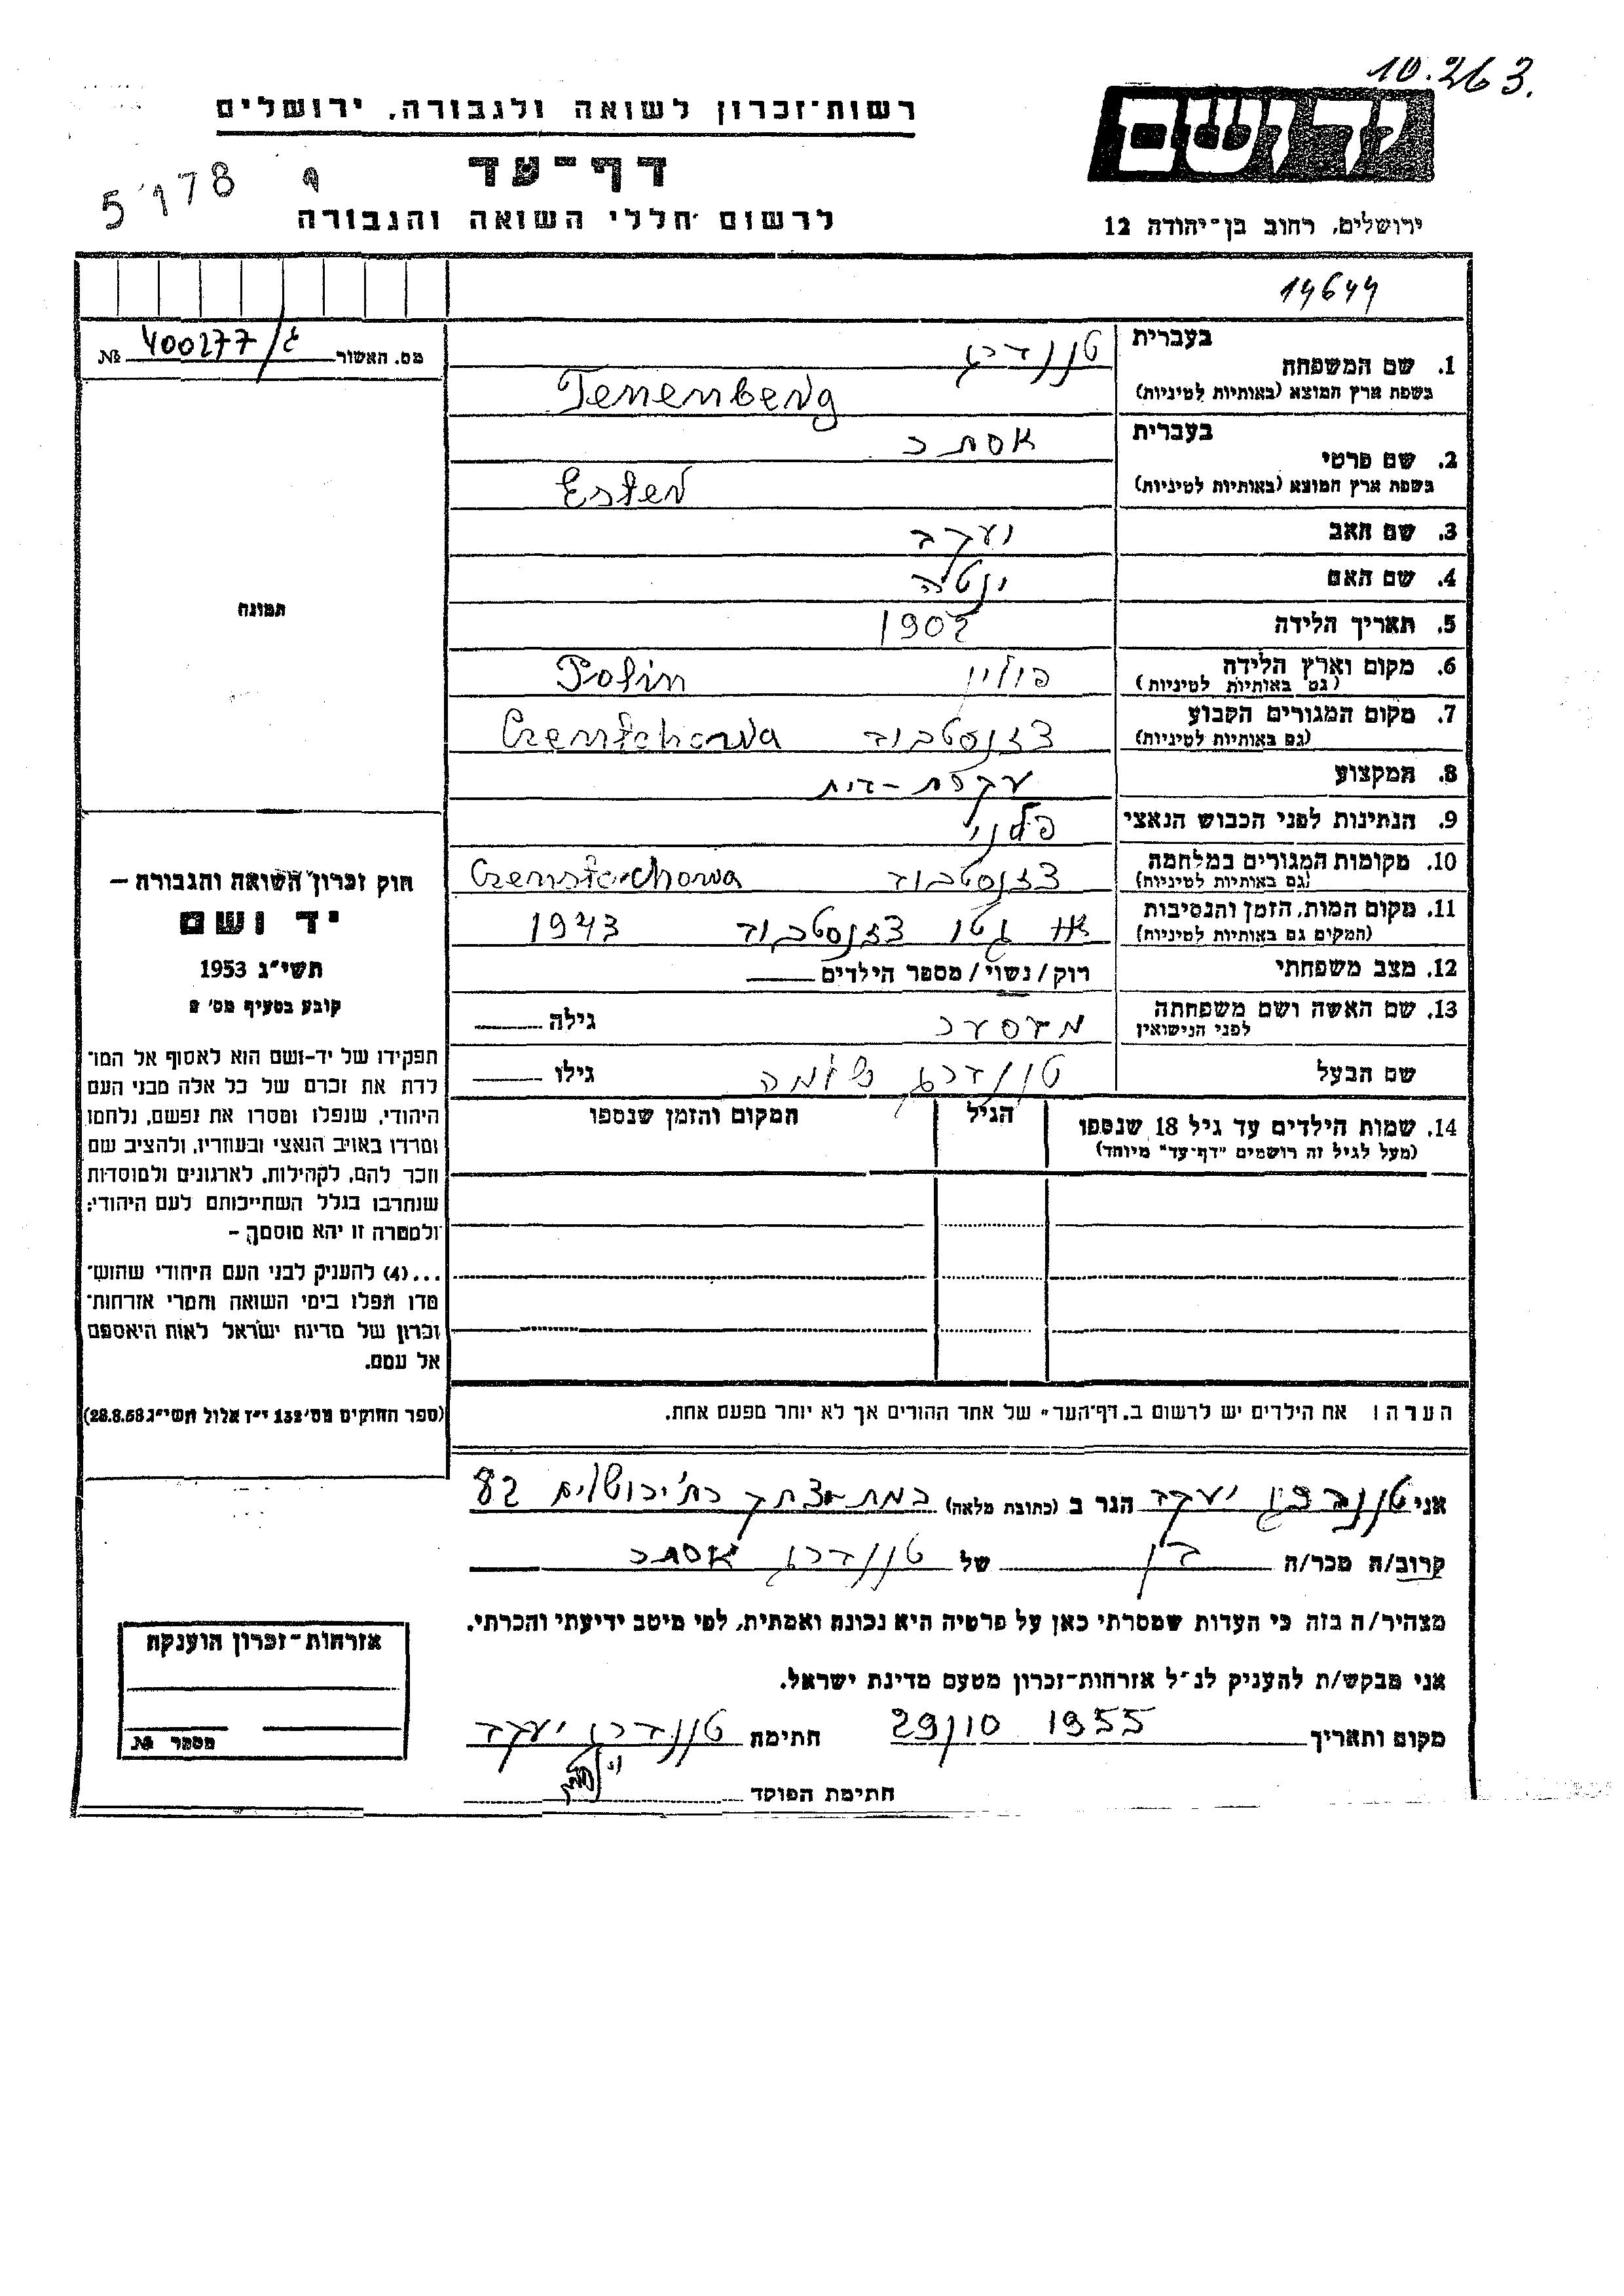 10.263.
רשות־זכרון לשואה ולגבורה, ירושלים
יד ושם
דף־עד
5178
לרשום חללי השואה והגבורה
ירושלים, רחוב בן־יהודה 12
14644
מס. האשור 400277/ №
1. שם המשפחה
בעברית טננברג
בשפת ארץ המוצא (באותיות לטיניות) Tenenberg
2. שם פרטי
בעברית אסתר
בשפת ארץ המוצא (באותיות לטיניות) Ester
3. שם האב יעקב
4. שם האם יטה
5. תאריך הלידה 1902
6. מקום וארץ הלידה (גם באותיות לטיניות) פולין Polin
7. מקום המגורים הקבוע (גם באותיות לטיניות) צזנסטכוב
8. המקצוע עקרת-בית
9. הנתינות לפני הכבוש הנאצי פולני
10. מקומות המגורים במלחמה (גם באותיות לטיניות) צזנסטכוב
11. מקום המות, הזמן והנסיבות (המקום גם באותיות לטיניות) גטו צזנסטכוב 1943
12. מצב משפחתי רוק/נשוי/מספר הילדים
13. שם האשה ושם משפחתה לפני הנישואין גילה
שם הבעל טננברג שלמה גילו
14. שמות הילדים עד גיל 18 שנספו
(מעל לגיל זה רושמים "דף־עד" מיוחד)
הגיל
המקום והזמן שנספו
תמונה
חוק זכרון השואה והגבורה –
יד ושם
תשי"ג 1953
קובע בסעיף מס' 2
תפקידו של יד-ושם הוא לאסוף אל המו־
לדת את זכרם של כל אלה מבני העם
היהודי, שנפלו ומסרו את נפשם, נלחמו
ומרדו באויב הנאצי ובעוזריו, ולהציב שם
וזכר להם, לקהילות, לארגונים ולמוסדות
שנחרבו בגלל השתייכותם לעם היהודי;
ולמטרה זו יהא מוסמך –
...(4) להעניק לבני העם היהודי שהוש־
מדו ונפלו בימי השואה והמרי אזרחות־
זכרון של מדינת ישראל לאות היאספם
אל עמם.
(ספר החוקים מס' 132 י"ז אלול תשי"ג 28.8.53)
הערה: את הילדים יש לרשום ב„דף־העד" של אחד ההורים אך לא יותר מפעם אחת.
אני טננברג יעקב הגר ב (כתובת מלאה) ירושלים 82
קרוב/ה מכר/ה בן של טננברג אסתר
מצהיר/ה בזה כי העדות שמסרתי כאן על פרטיה היא נכונה ואמתית, לפי מיטב ידיעתי והכרתי.
אני מבקש/ת להעניק לנ"ל אזרחות-זכרון מטעם מדינת ישראל.
מקום ותאריך 29/10 1955 חתימת טננברג יעקב
חתימת הפוקד
אזרחות-זכרון הוענקה
מספר №